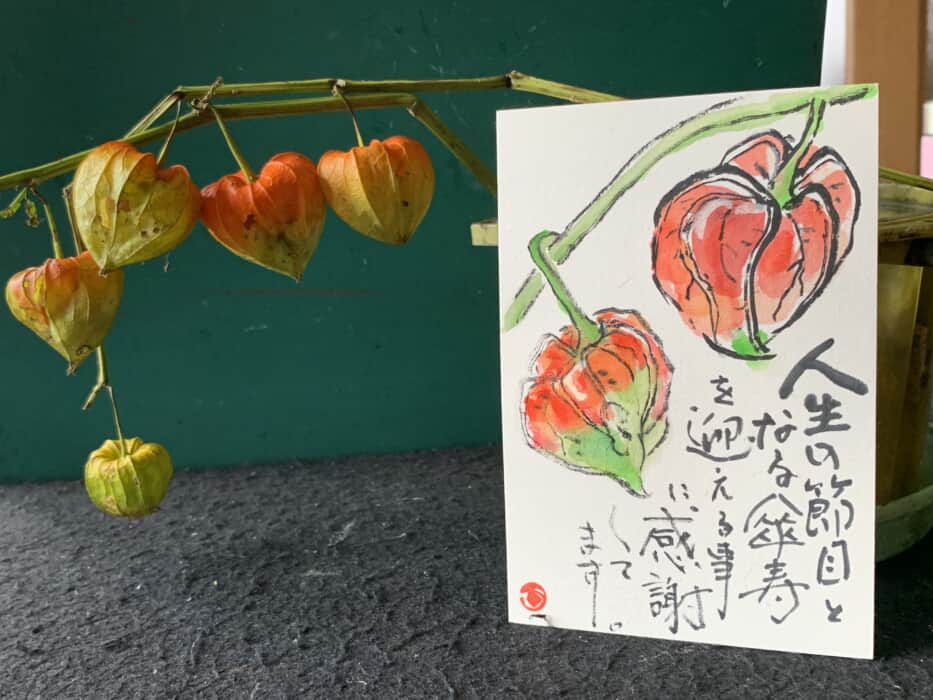 人生の節目と
なる傘寿
を迎える事
に、感謝
して
ます。